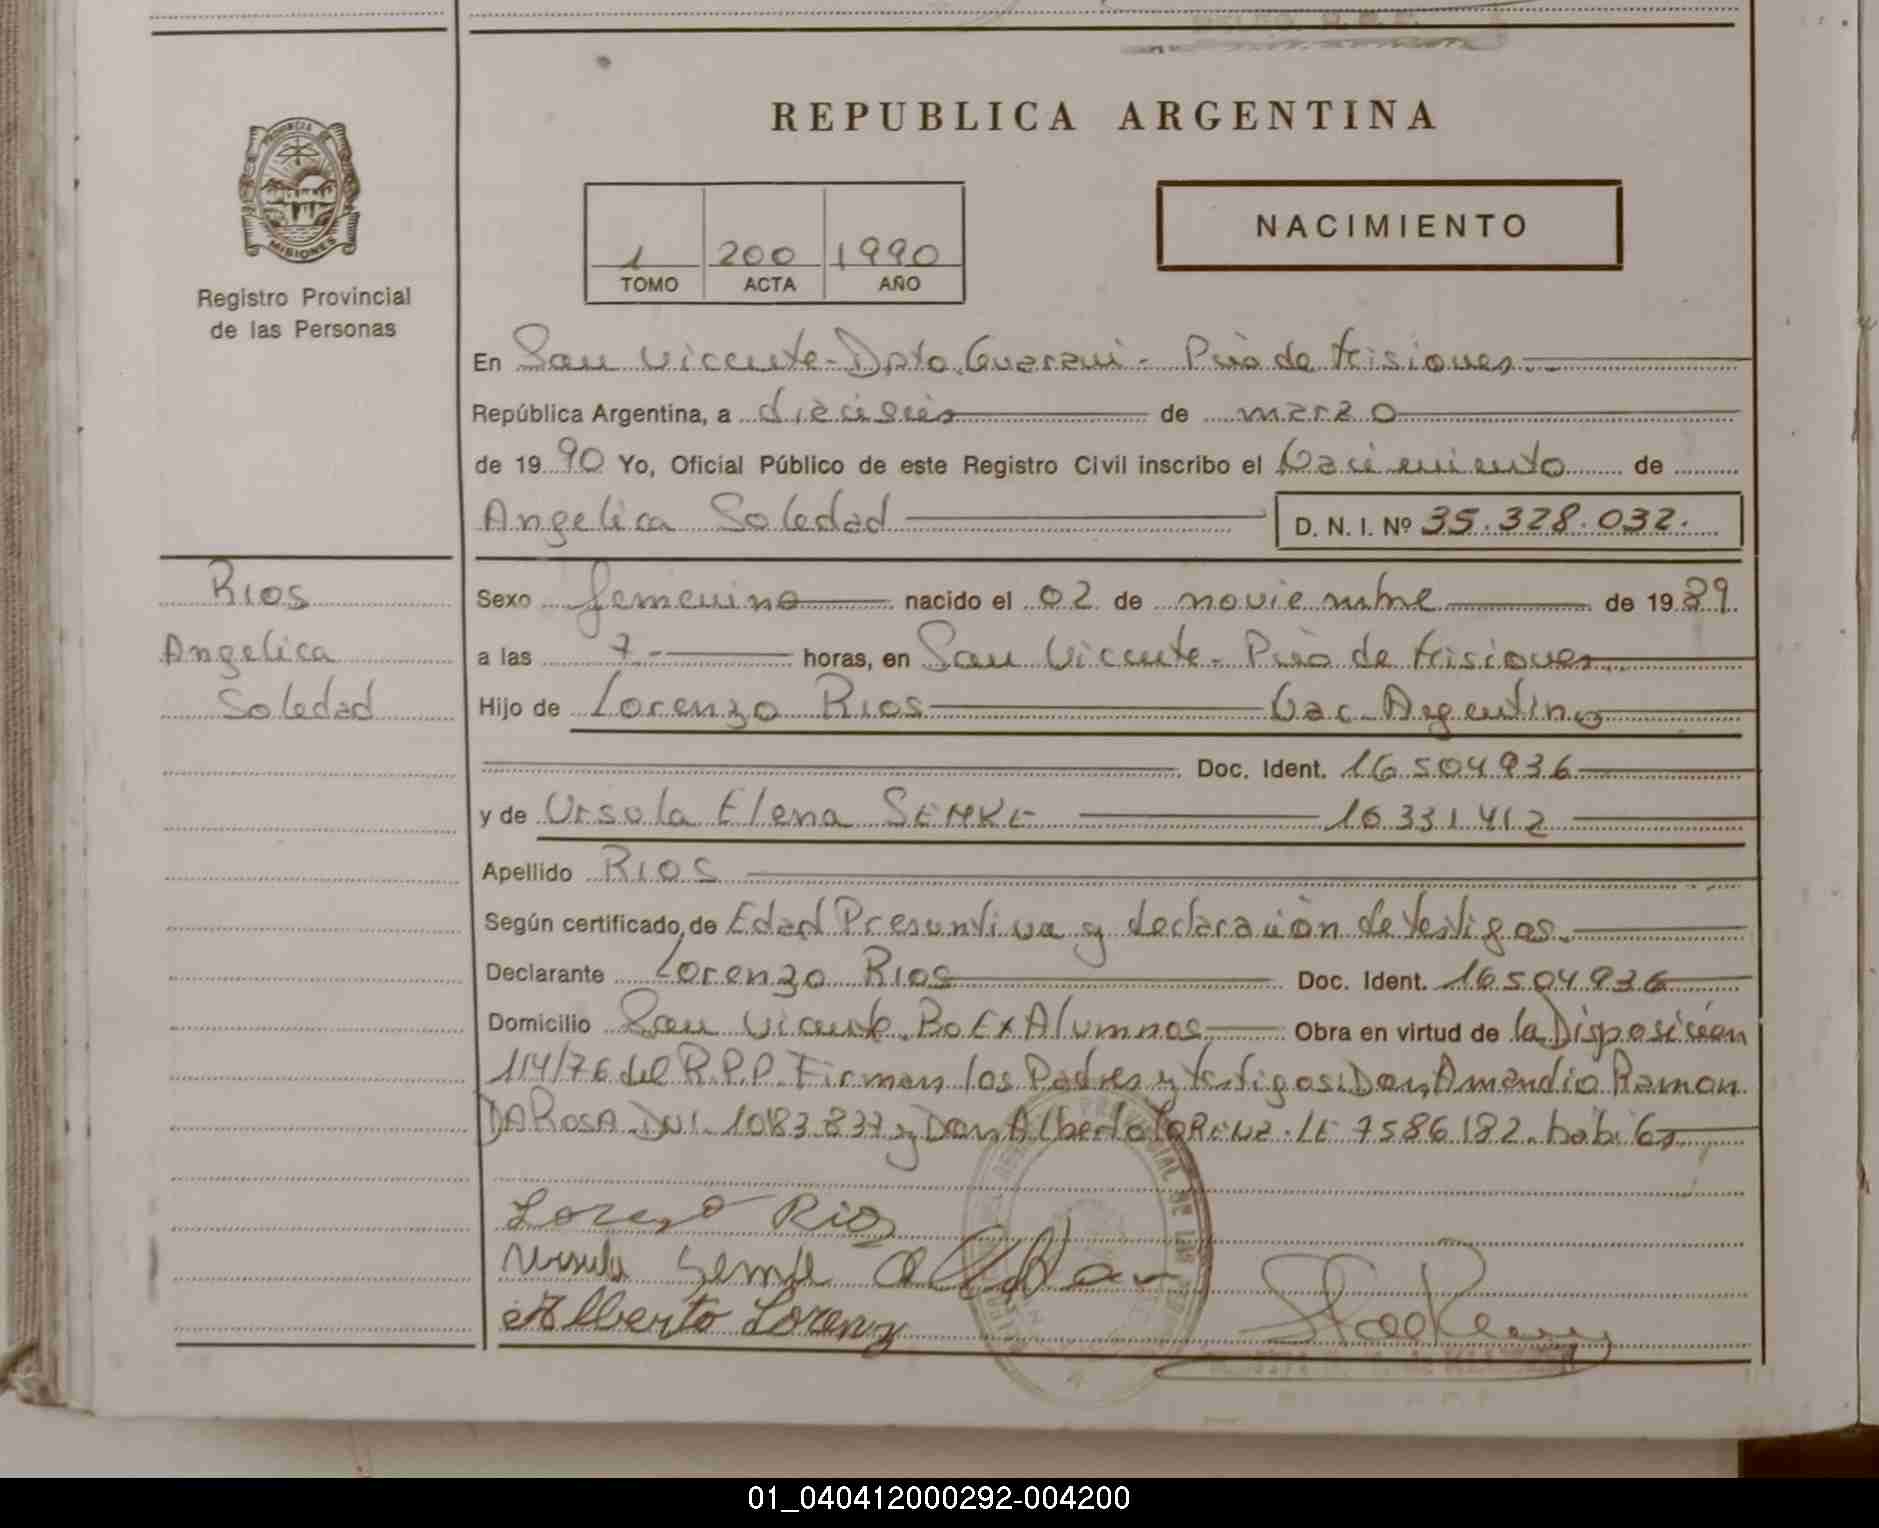 REPUBLICA ARGENTINA
PROVINCIA
MISIONES
Registro Provincial
de las Personas
1 200 1990
TOMO ACTA AÑO
NACIMIENTO
En San Vicente-Dpto. Guarani- Pcia de Misiones
República Argentina, a dieciseis de marzo
de 1990 Yo, Oficial Público de este Registro Civil inscribo el Nacimiento de
Angelica Soledad D. N. I. Nº 35.328.032.
Rios
Angelica
Soledad
Sexo femenino nacido el 02 de noviembre de 1989
a las 7- horas, en San Vicente- Pcia de Misiones
Hijo de Lorenzo Rios Nac. Argentino
Doc. Ident. 16504936
y de Ursola Elena SEMKE 16331412
Apellido RIOS
Según certificado de Edad Presuntiva y declaración de testigos.
Declarante Lorenzo Rios Doc. Ident. 16504936
Domicilio San Vicente. Bo Ex Alumnos Obra en virtud de la Disposición
114/76 del R.P.P. Firman los Padres y testigos: Don Amandio Ramon
DA ROSA DNI. 10183.837 y Don Alberto LORENZ. LE 7586182. habiles
Lorenzo Rios
Ursula Semke
Alberto Lorenz
01_040412000292-004200